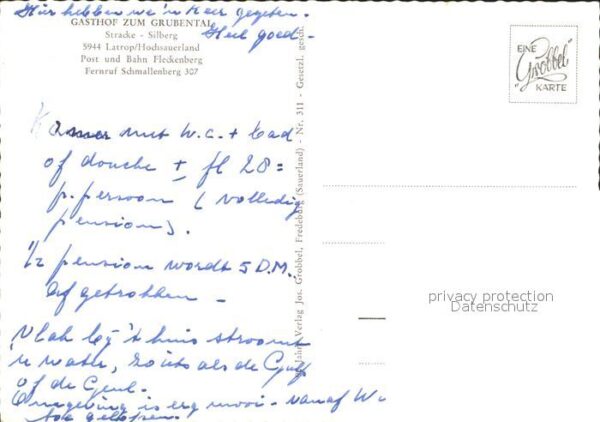 Hier hebben we 'n keer gegeten.
Heel goed.-
GASTHOF ZUM GRUBENTAL
Stracke - Silberg
5944 Latrop/Hochsauerland
Post und Bahn Fleckenberg
Fernruf Schmallenberg 307
EINE
"Grobbel"
KARTE
Kamer met W.C. + bad
of douche ± fl 28 =
p. persoon (volledig
pension).
½ pension wordt 5 D.M.
afgetrokken -
Vlak bij 't huis stroomt
'n water, zoiets als de Gulp
of de Geul.
Omgeving is erg mooi - vanaf W
gelopen.
Verlag Jos. Grobbel, Fredeburg (Sauerland) - Nr. 311 - Gesetzl. gesch.
privacy protection
Datenschutz